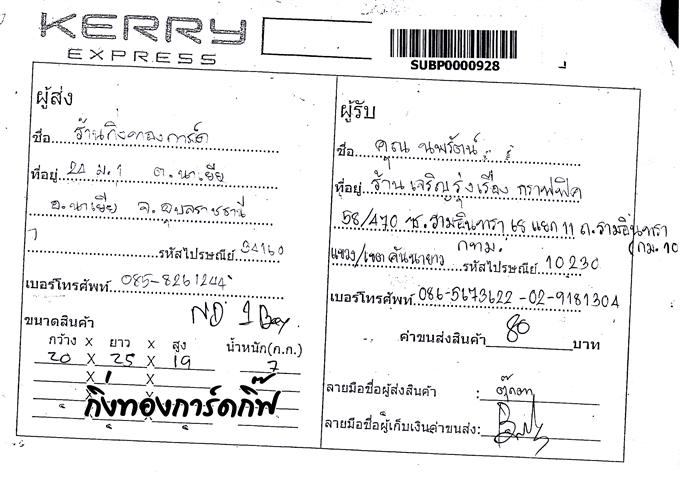 KERRY
EXPRESS
SUBP0000928
ผู้ส่ง
ชื่อ ร้านกิ่งทองการ์ด
ที่อยู่ 24 ม.1 ต.นาเยีย
อ.นาเยีย จ.อุบลราชธานี
รหัสไปรษณีย์ 34160
เบอร์โทรศัพท์ 085-8261244
ND 1 Box
ขนาดสินค้า
กว้าง x ยาว x สูง น้ำหนัก(ก.ก.)
20 X 25 X 19 7
X 1 X
X X
กิ่งทองการ์ดกิ๊ฟ
X X
ผู้รับ
ชื่อ คุณ นพรัตน์
ที่อยู่ ร้าน เจริญรุ่งเรือง กราฟฟิค
58/470 ซ.รามอินทรา 65 แยก 11 ถ.รามอินทรา
กทม. (กม.10
แขวง/เขต คันนายาว รหัสไปรษณีย์ 10230
เบอร์โทรศัพท์ 086-5673622 -02-9181304
ค่าขนส่งสินค้า 80 บาท
ลายมือชื่อผู้ส่งสินค้า : ตุ๊กตา
ลายมือชื่อผู้เก็บเงินค่าขนส่ง: